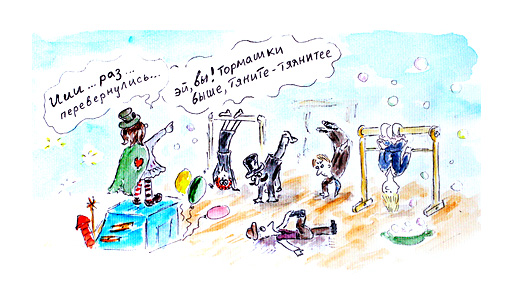 Иии...раз...
перевернулись...
эй, вы! Тормашки
выше, тяните-тяянитее